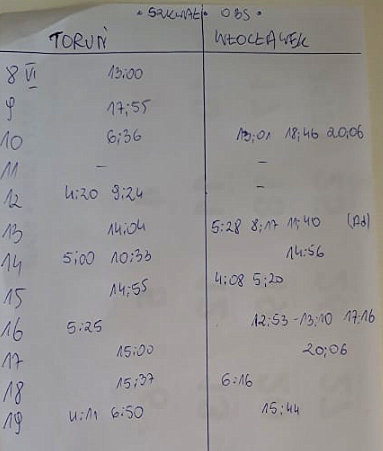 • SZKWAŁ • OBS •
TORUŃ WŁOCŁAWEK
8 VI 13:00
9 17:55
10 6:36 13:01 18:46 20:06
11 – –
12 4:20 9:24 –
13 14:04 5:28 8:17 11:40
14 5:00 10:33 14:56
15 14:55 4:08 5:20
16 5:25 12:53-13:10 17:16
17 15:00 20:06
18 15:37 6:16
19 4:11 6:50 15:44